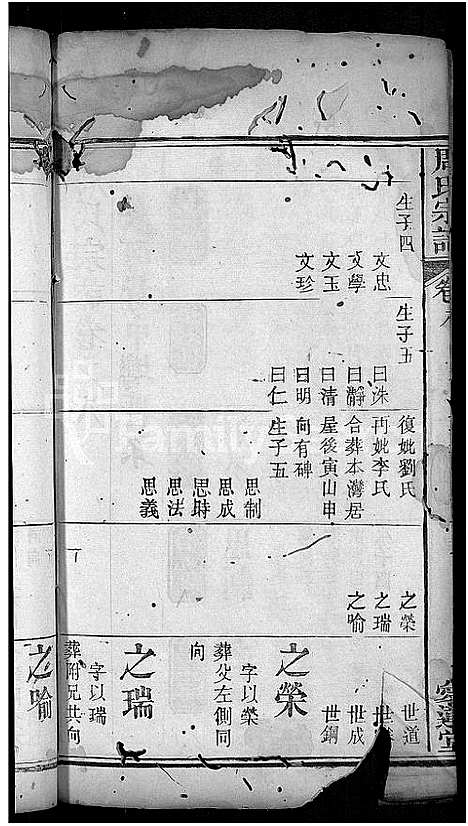 周氏宗譜
卷
生子四
文忠
文學
文玉
文珍
生子五
曰洙
曰瀞
曰清
曰明
曰仁
復妣劉氏
再妣李氏
合葬本灣居
屋後寅山申
向有碑
生子五
思制
思成
思時
思法
思義
之榮
之瑞
之喻
世道
世成
世鋼
之榮
字以榮
葬父左側同
向
之瑞
字以瑞
葬附兄共向
之喻